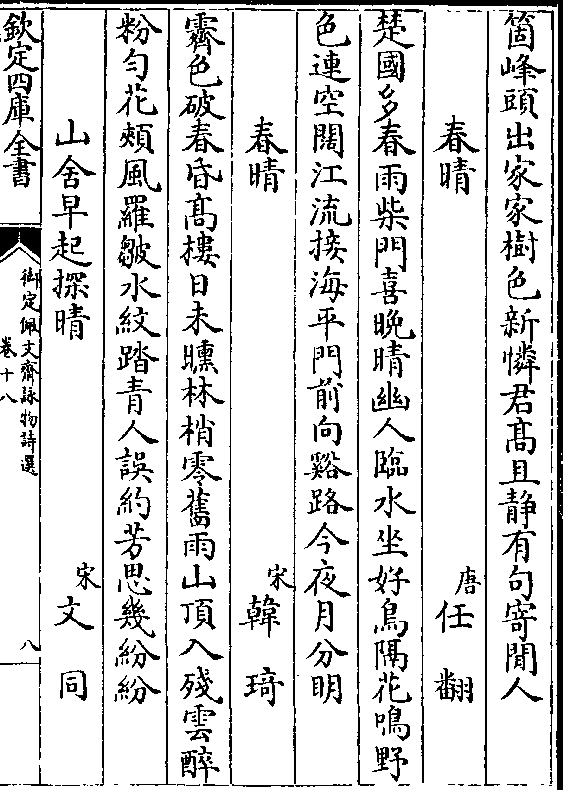 箇峰頭出家家樹色新憐君髙且静有句寄閒人
春晴 唐任翻
楚國多春雨柴門喜晚晴幽人臨水坐好鳥隔花鳴野
色連空闊江流接海平門前向谿路今夜月分明
春晴 宋韓琦
霽色破春昏髙樓日未曛林梢零舊雨山頂入殘雲醉
粉勻花頰風羅皺水紋踏青人誤約芳思幾紛紛
山舍早起探晴 宋文同
欽定四庫全書
御定佩文齋詠物詩選
卷十八
八